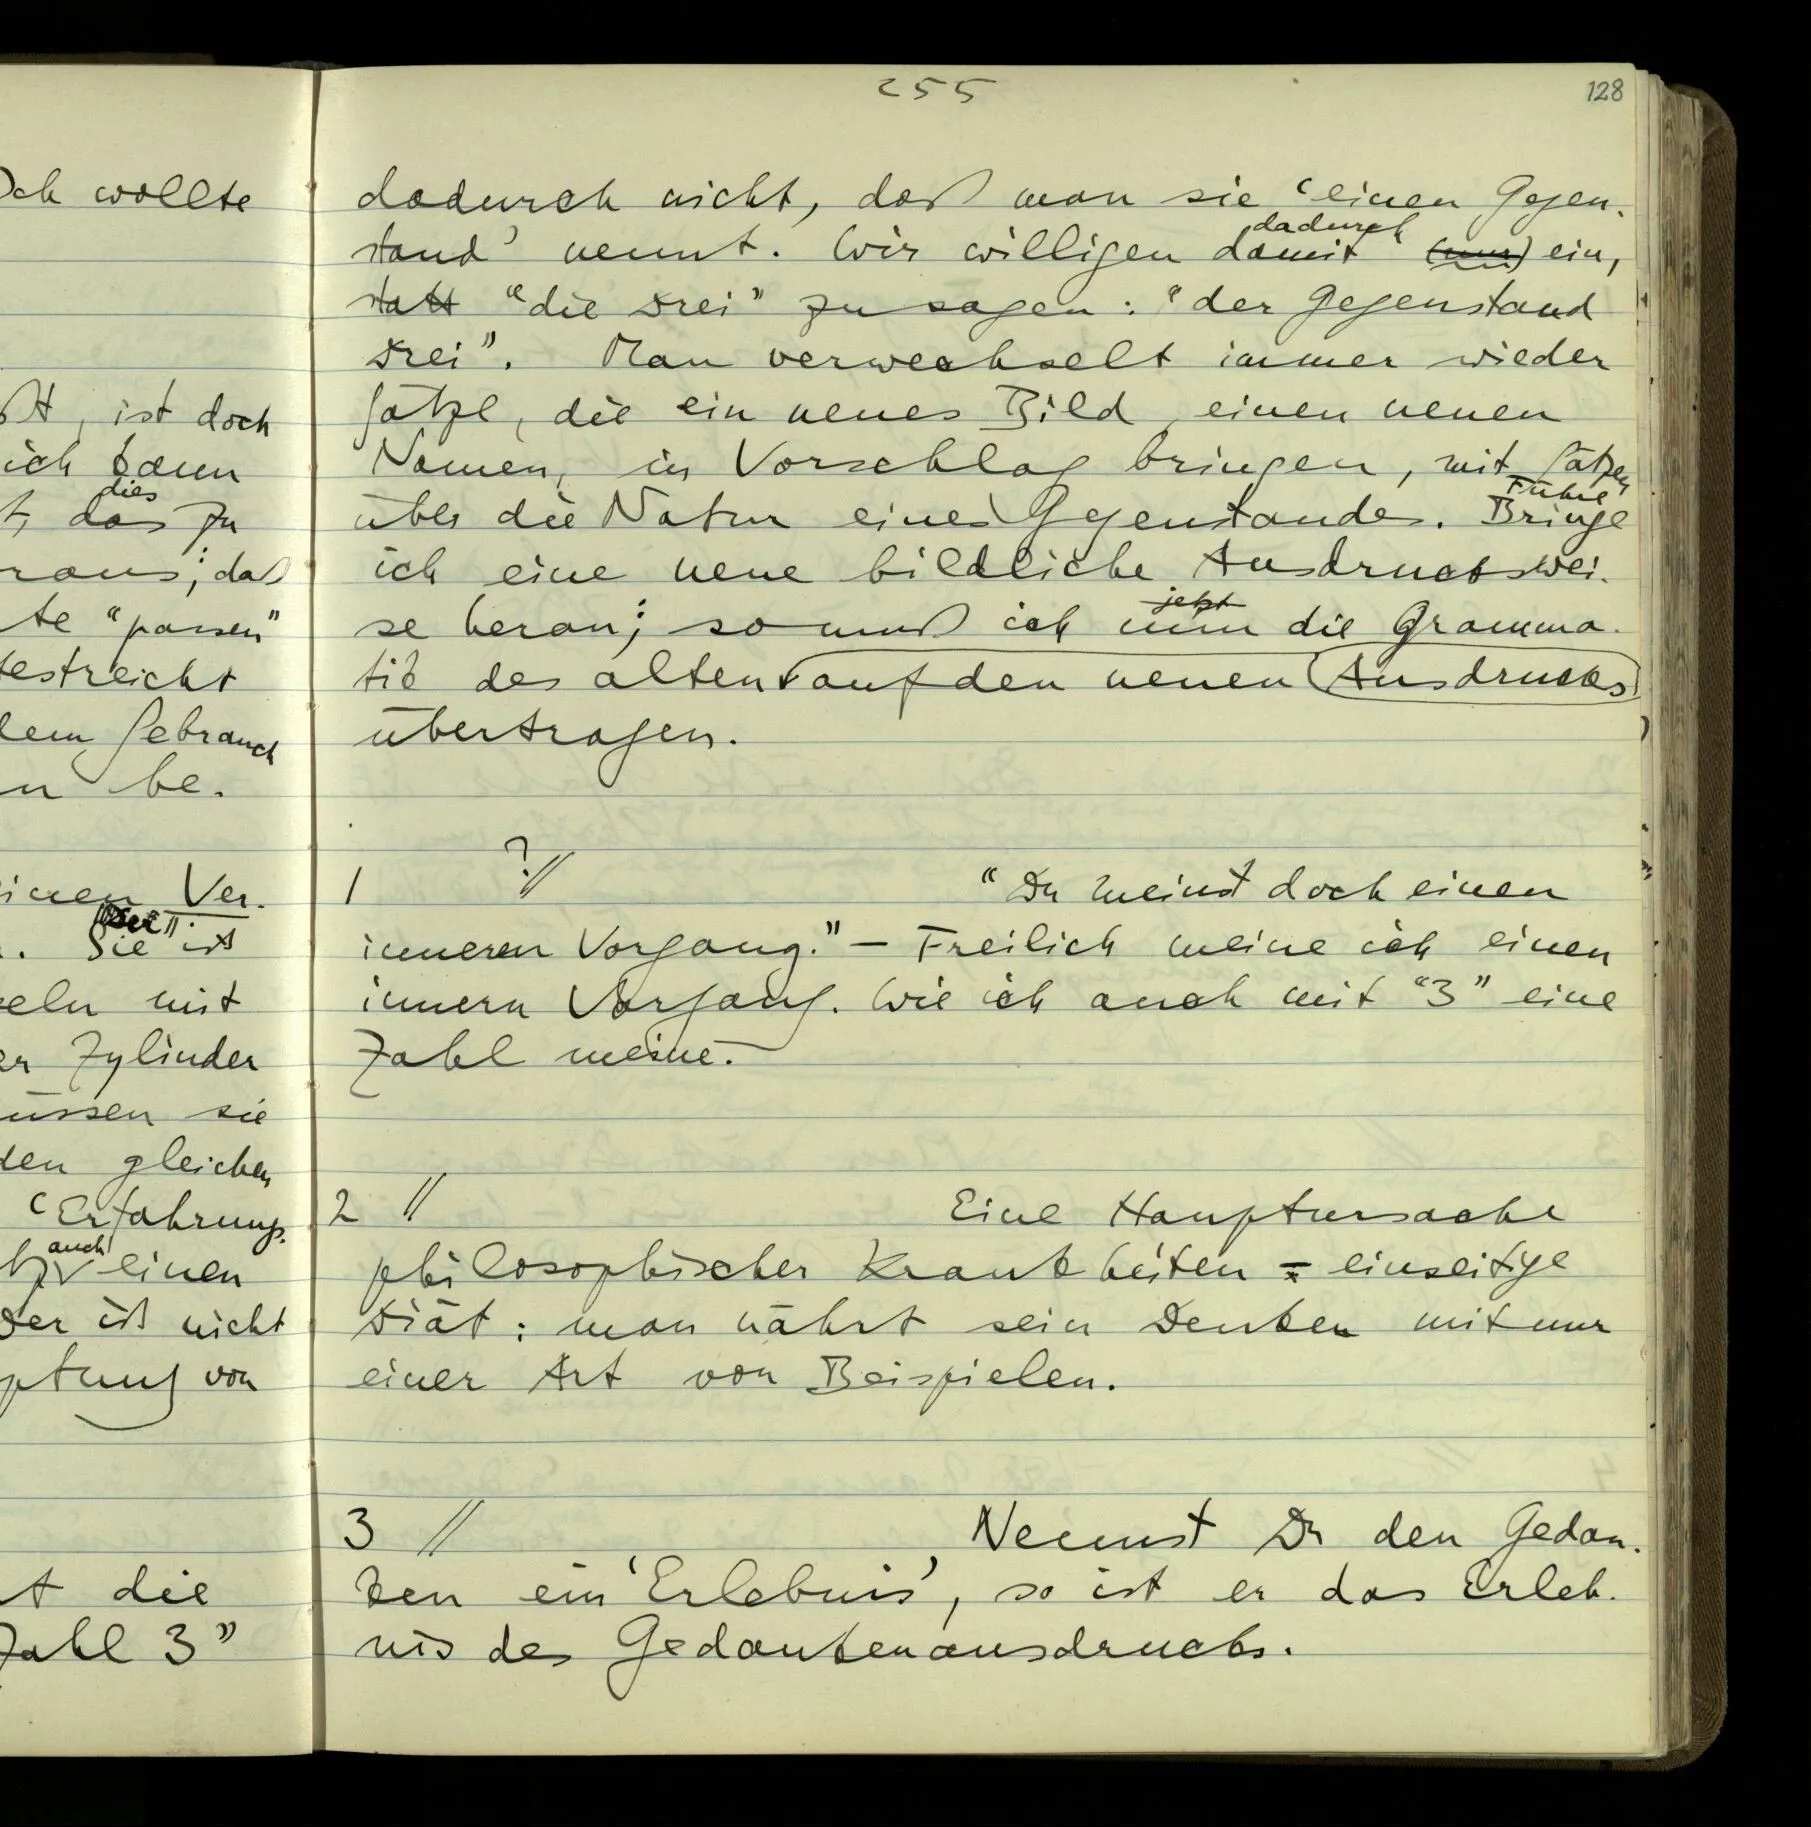 255
128
dadurch nicht, daß man sie ‘einen Gegen-
stand’ nennt. Wir willigen damit dadurch (nur) ein,
statt “die Drei” zu sagen: “der Gegenstand
Drei”. Man verwechselt immer wieder
Sätze, die ein neues Bild, einen neuen
Namen, in Vorschlag bringen, mit Sätzen
über die Natur eines Gegenstandes. Bringe Führe
ich eine neue bildliche Ausdruckswei-
se heran; so muß ich nun jetzt die Gramma-
tik des alten auf den neuen Ausdrucks
übertragen.
1 ?// “Du meinst doch einen
inneren Vorgang.” – Freilich meine ich einen
innern Vorgang. Wie ich auch mit “3” eine
Zahl meine.
2 // Eine Hauptursache
philosophischer Krankheiten = einseitige
Diät: man nährt sein Denken mit nur
einer Art von Beispielen.
3 // Nennst Du den Gedan-
ken ein ‘Erlebnis’, so ist er das Erleb-
nis des Gedankenausdrucks.
Ich wollte
, ist doch
ich kann
das dies zu
raus; daß
te “passen”
bestreicht
dem Gebrauch
n be-
einen Ver-
. Sie ist
eln mit
er Zylinder
üssen sie
den gleichen
‘Erfahrungs-
auch einen
Der ist nicht
ptung von
t die
Zahl 3”